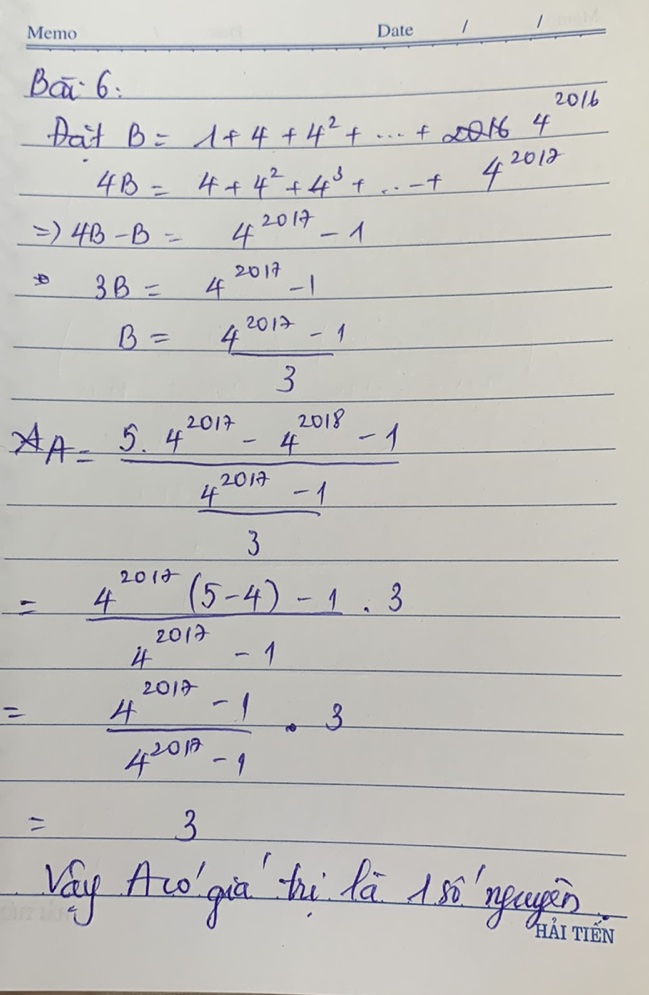 Memo Date / /
Bài 6:
Đặt B = 1 + 4 + 4² + ... + 4²⁰¹⁶
4B = 4 + 4² + 4³ + ... + 4²⁰¹⁷
=) 4B - B = 4²⁰¹⁷ - 1
3B = 4²⁰¹⁷ - 1
B = 4²⁰¹⁷ - 1
3
A = 5. 4²⁰¹⁷ - 4²⁰¹⁸ - 1
4²⁰¹⁷ - 1
3
= 4²⁰¹⁷ (5-4) - 1 . 3
4²⁰¹⁷ - 1
= 4²⁰¹⁷ - 1 . 3
4²⁰¹⁷ - 1
= 3
Vậy A có giá trị là 1 số nguyên.
HẢI TIẾN